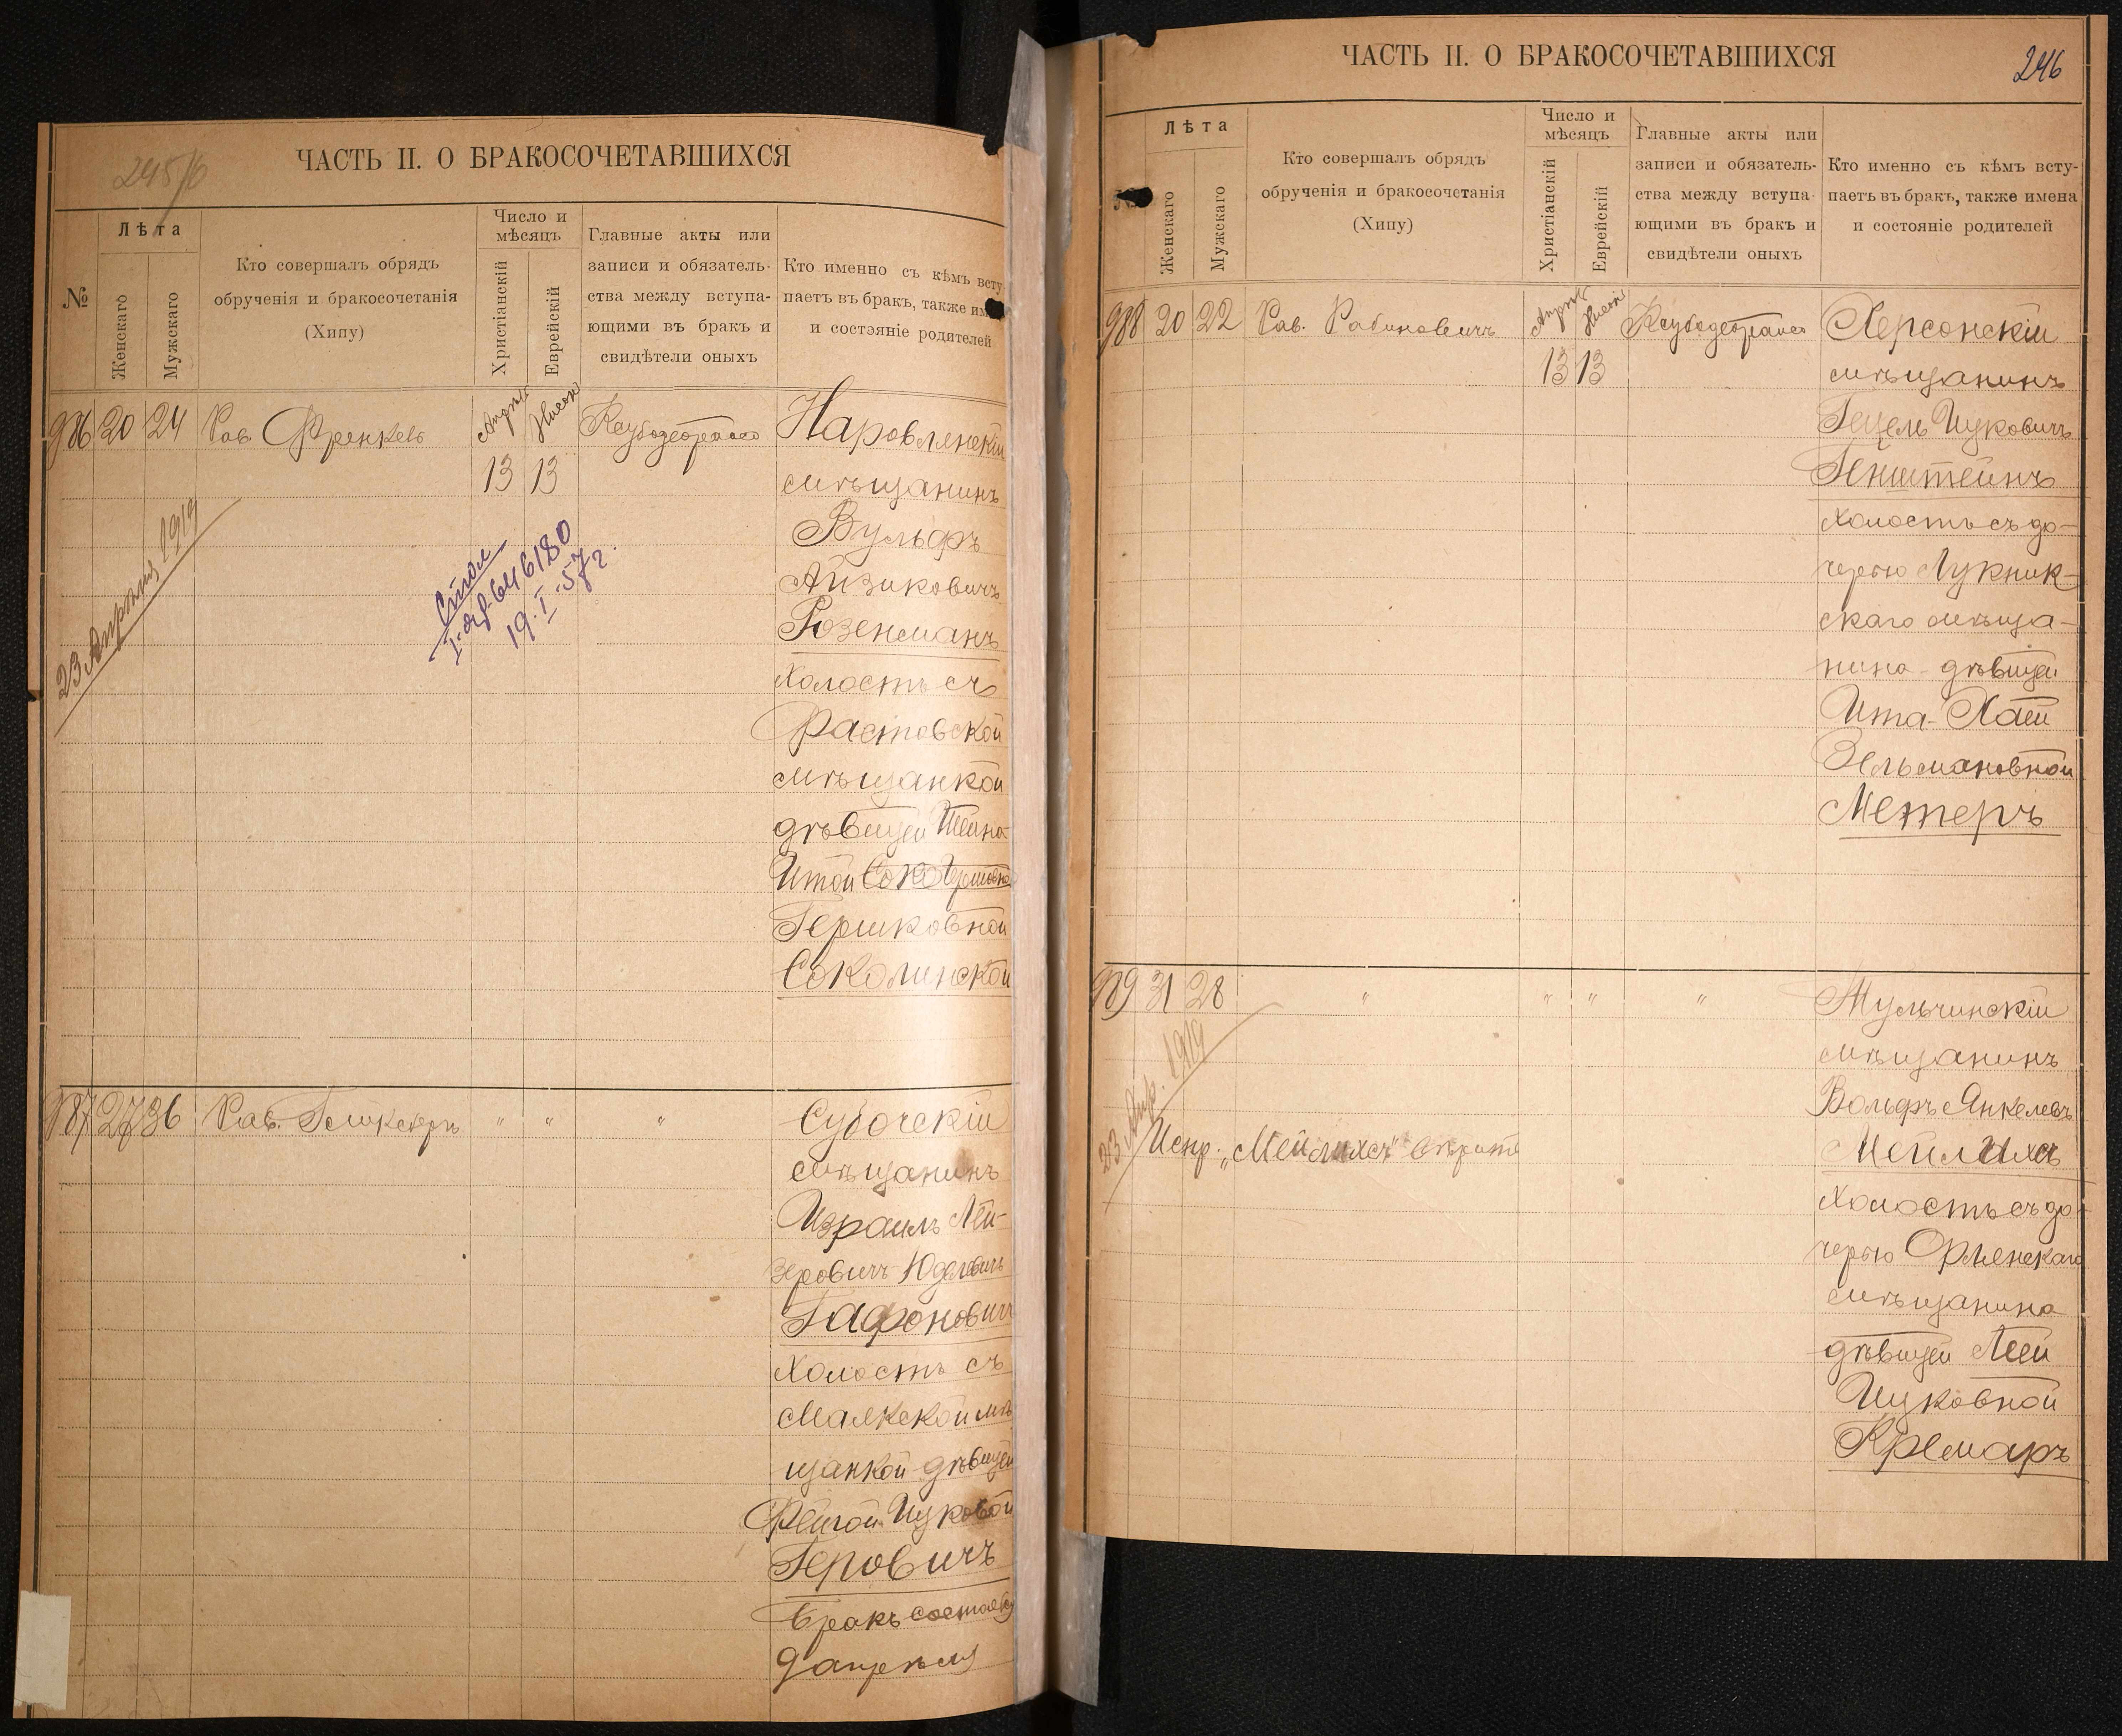 245/6
ЧАСТЬ II. О БРАКОСОЧЕТАВШИХСЯ
№
Лѣта
Женскаго
Мужскаго
Кто совершалъ обрядъ
обрученія и бракосочетанія
(Хипу)
Число и
мѣсяцъ
Христіанскій
Еврейскій
Главные акты или
записи и обязатель-
ства между вступа-
ющими въ бракъ и
свидѣтели оныхъ
Кто именно съ кѣмъ всту
паетъ въ бракъ, также им
и состэяніе родителей
986 20 24 Рав. Френкель
13 13
Наровлянскій
мѣщанинъ
Вульфъ
Айзиковичъ
Розенманъ
холостъ съ
мѣщанкой
дѣвицей
Итой
Гершковной
Соколинской
23 Апрѣля 1919
19.I.57г.
987 27 36 Рав.
" " "
Суботскій
мѣщанинъ
Израиль Лей-
зеровичъ
Гафоновичъ
холостъ съ
Маякской мѣ
щанкой дѣвицей
Фейгой Ицковой
Геровичъ
Бракъ
ЧАСТЬ II. О БРАКОСОЧЕТАВШИХСЯ
246
Лѣта
Женскаго
Мужскаго
Кто совершалъ обрядъ
обрученія и бракосочетанія
(Хипу)
Число и
мѣсяцъ
Христіанскій
Еврейскій
Главные акты или
записи и обязатель-
ства между вступа-
ющими въ бракъ и
свидѣтели оныхъ
Кто именно съ кѣмъ всту-
паетъ въ бракъ, также имена
и состояніе родителей
988 20 22 Рав. Рабиновичъ
13 13
Херсонскій
мѣщанинъ
Гецель Ицковичъ
Генштейнъ
холостъ съ до-
черью Лукник-
скаго мѣща-
нина дѣвицей
Ита-Хаей
Зельмановной
Метеръ
989 31 28 " " " "
Тульчинскій
мѣщанинъ
Вольфъ Янкелевъ
Мейлихсъ
холостъ съ до-
черью
мѣщанина
дѣвицей Леей
Ицковной
Кремаръ
23 Апр. 1919
Испр. „Мейлихсъ" вѣрить